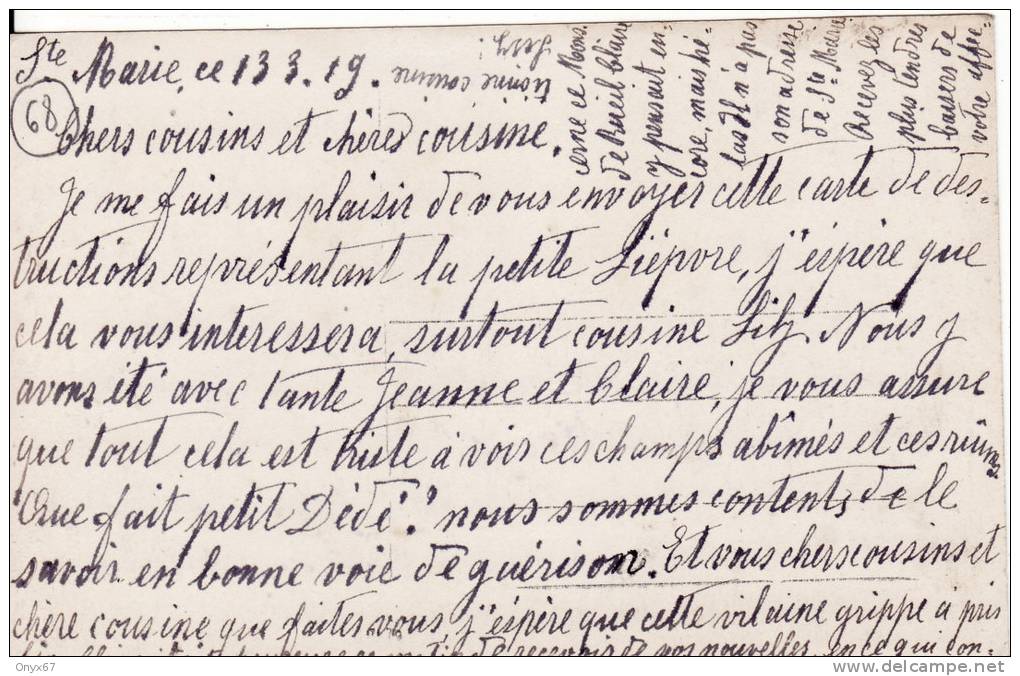 Ste Marie, ce 13 3. 19.
68
Chers cousins et chère cousine.
Je me fais un plaisir de vous envoyer cette carte de des-
tructions représentant la petite Lièpvre, j'éspère que
cela vous interessera, surtout cousine Lily. Nous y
avons été avec tante Jeanne et Claire, je vous assure
que tout cela est triste à voir ces champs abîmés et ces rüines
"Que fait petit Dédé"? nous sommes contents de le
savoir en bonne voie de guérison. Et vous chers cousins et
chère cousine que faites vous, j'éspère que cette vilaine grippe a pris
de recevoir de vos nouvelles, en ce qui con-
cerne ce Mons.
de Rueil Claire
y pensait en-
core, mais hé-
las Il n'a pas
son adresse
de Ste Marie
Recevez les
plus tendres
baisers de
votre affec-
cousine
Onyx67
delcampe.net